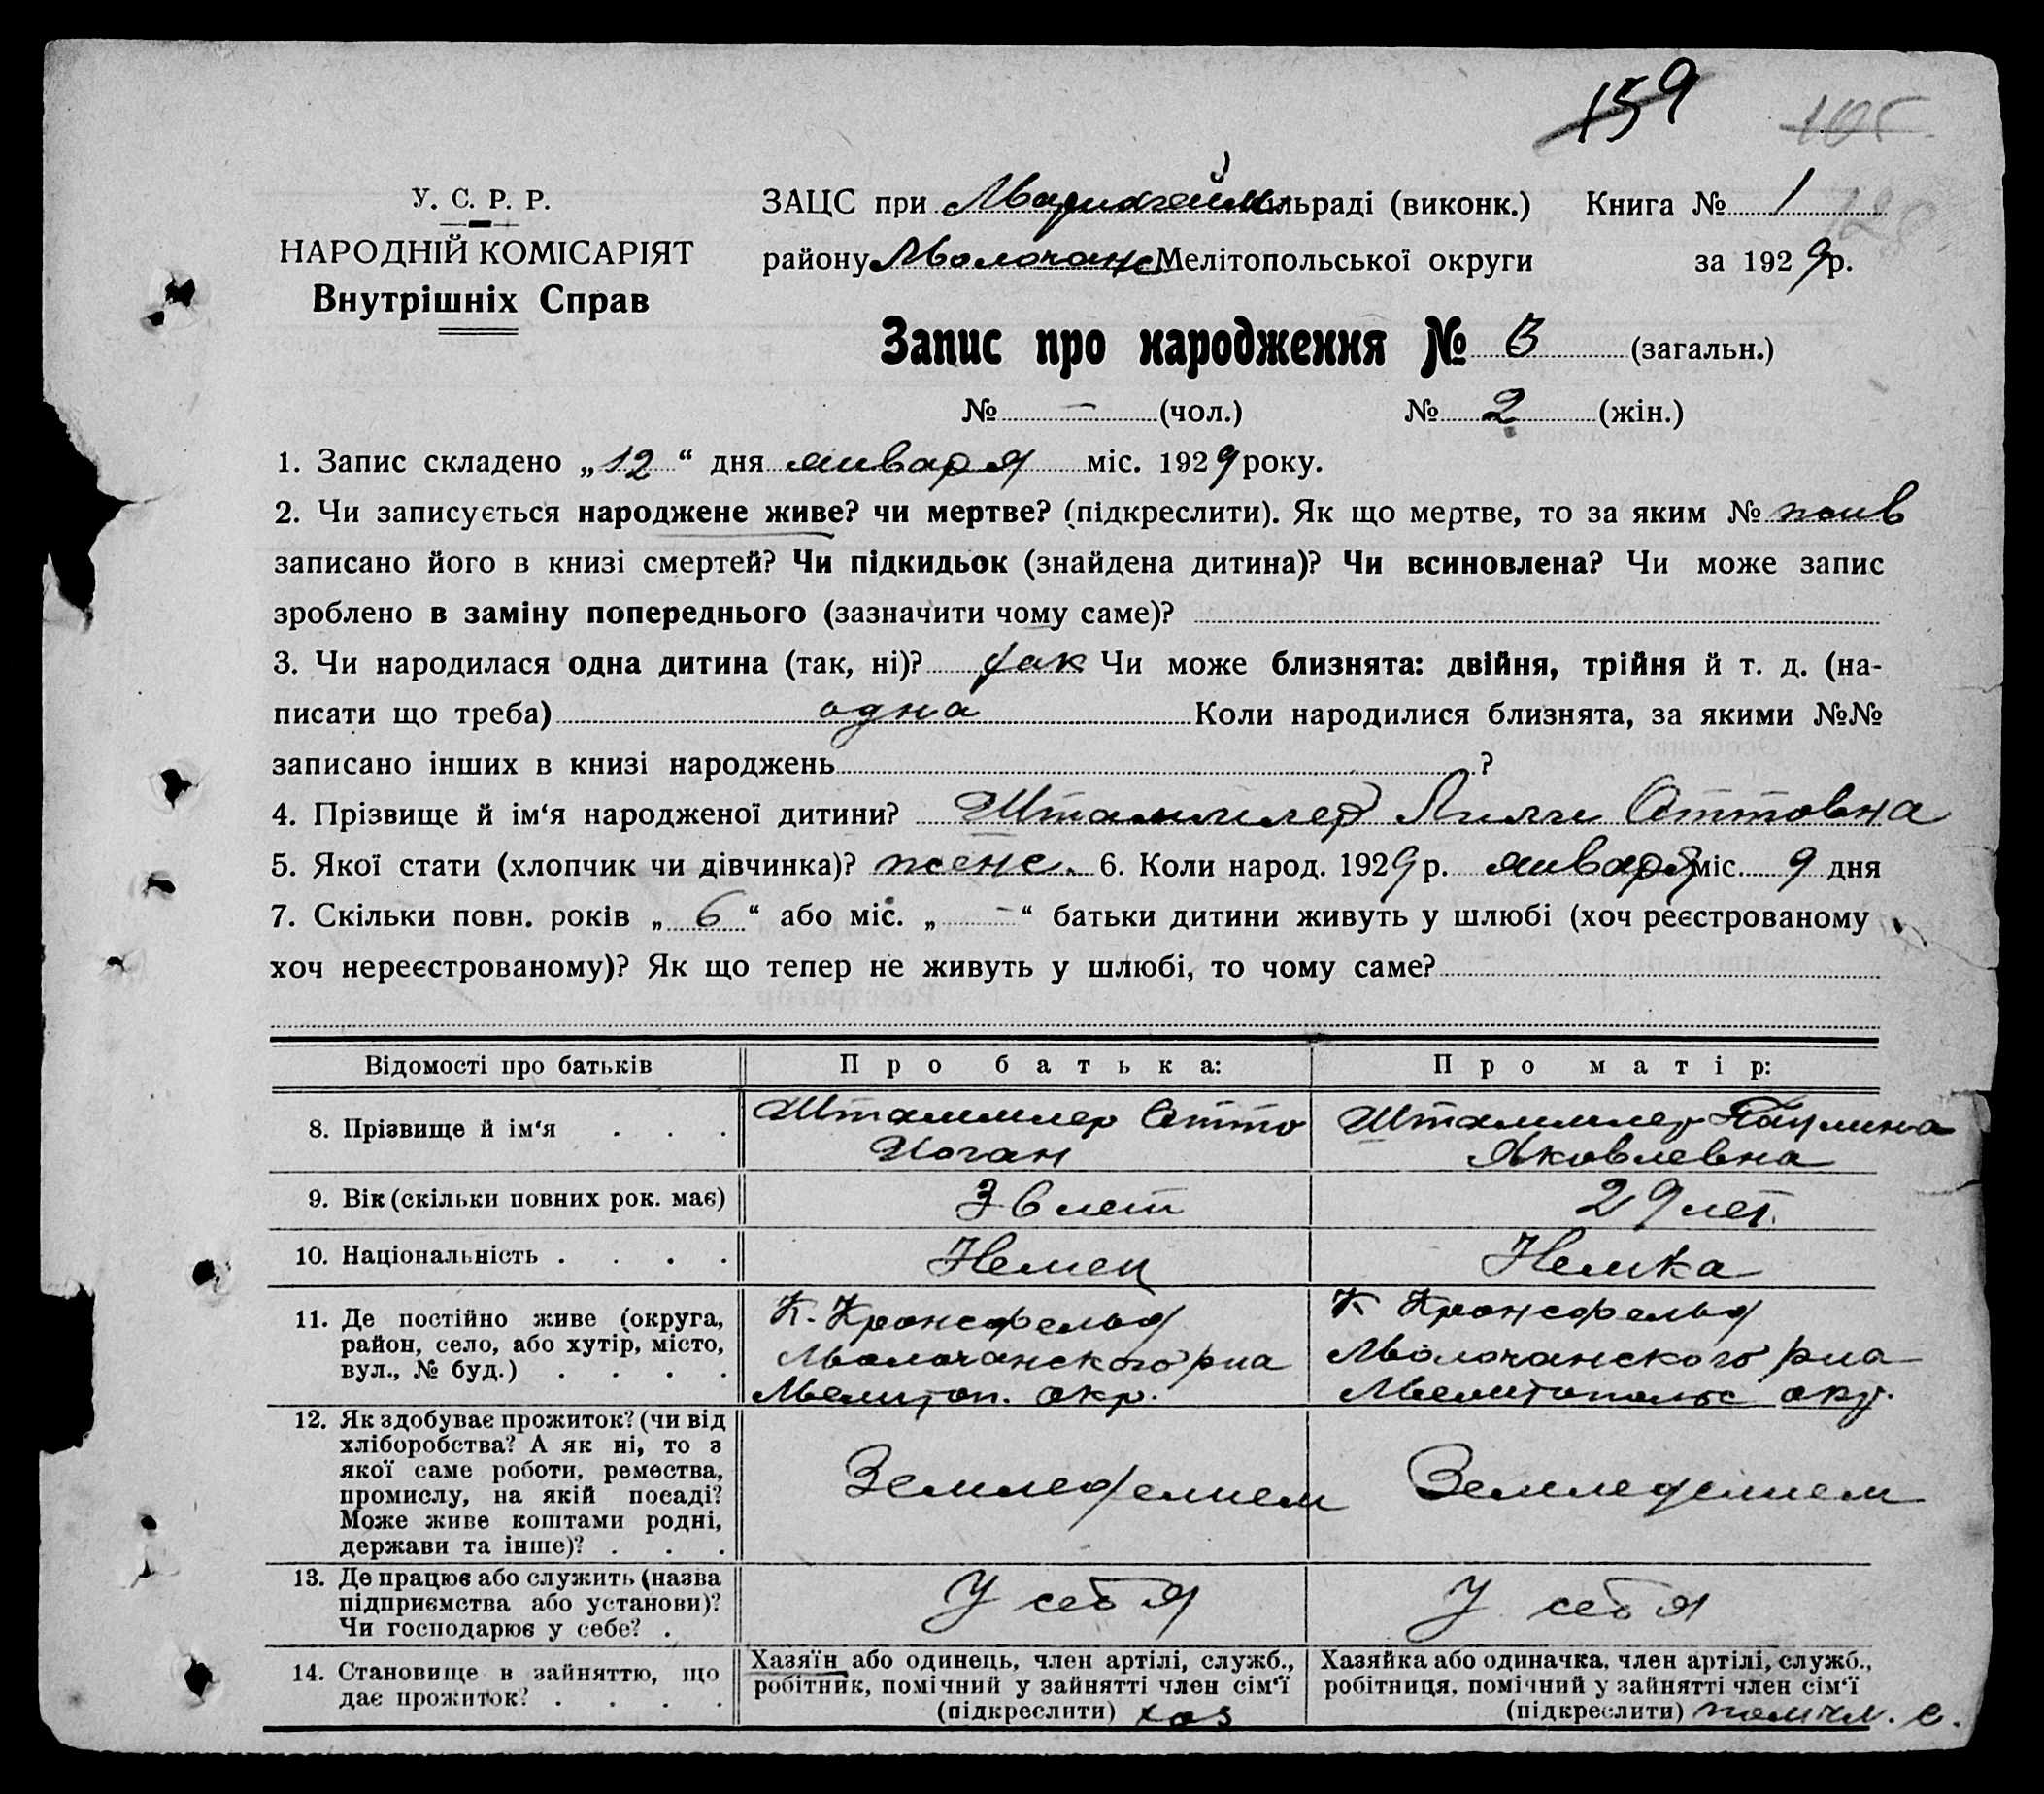 159
105
128
У. С. Р. Р.
НАРОДНІЙ КОМІСАРІЯТ
Внутрішніх Справ
ЗАЦС при Мариягейм сільраді (виконк.) Книга № 1
району Молочанс Мелітопольської округи за 1929 р.
Запис про народження № 3 (загальн.)
№ - (чол.) № 2 (жін.)
1. Запис складено „12“ дня января міс. 1929 року.
2. Чи записується народжене живе? чи мертве? (підкреслити). Як що мертве, то за яким №
записано його в книзі смертей? Чи підкидьок (знайдена дитина)? Чи всиновлена? Чи може запис
зроблено в заміну попереднього (зазначити чому саме)?
3. Чи народилася одна дитина (так, ні)? так Чи може близнята: двійня, трійня й т. д. (на-
писати що треба) одна Коли народилися близнята, за якими №№
записано інших в книзі народжень ?
4. Прізвище й ім‘я народженої дитини? Штаммлер Лилли Оттовна
5. Якої стати (хлопчик чи дівчинка)? женс. 6. Коли народ. 1929 р. января міс. 9 дня
7. Скільки повн. років „6“ або міс. „-“ батьки дитини живуть у шлюбі (хоч реєстрованому
хоч нереєстрованому)? Як що тепер не живуть у шлюбі, то чому саме?
Відомості про батьків Про батька: Про матір:
8. Прізвище й ім‘я . . . Штаммлер Отто Штаммлер Паулина
Иоган Яковлевна
9. Вік (скільки повних рок. має) 36 лет 29 лет.
10. Національність . . . . Немец Немка
11. Де постійно живе (округа, район, село, або хутір, місто, вул., № буд.) . . . .
К. Кронсфельд К Кронсфельд
Молочанского рна Молочанского рна
Мелитоп. окр. Мелитопольс окр.
12. Як здобуває прожиток? (чи від
хліборобства? А як ні, то з
якої саме роботи, ремества,
промислу, на якій посаді?
Може живе коштами родні,
держави та інше)? . . .
Земледелием Земледелием
13. Де працює або служить (назва
підприємства або установи)?
Чи господарює у себе? .
У себя У себя
14. Становище в зайняттю, що
дає прожиток? . . . .
Хазяїн або одинець, член артілі, служб.,
робітник, помічний у зайнятті член сім‘ї
(підкреслити) хоз
Хазяйка або одиначка, член артілі, служб.,
робітниця, помічний у зайнятті член сім‘ї
(підкреслити)